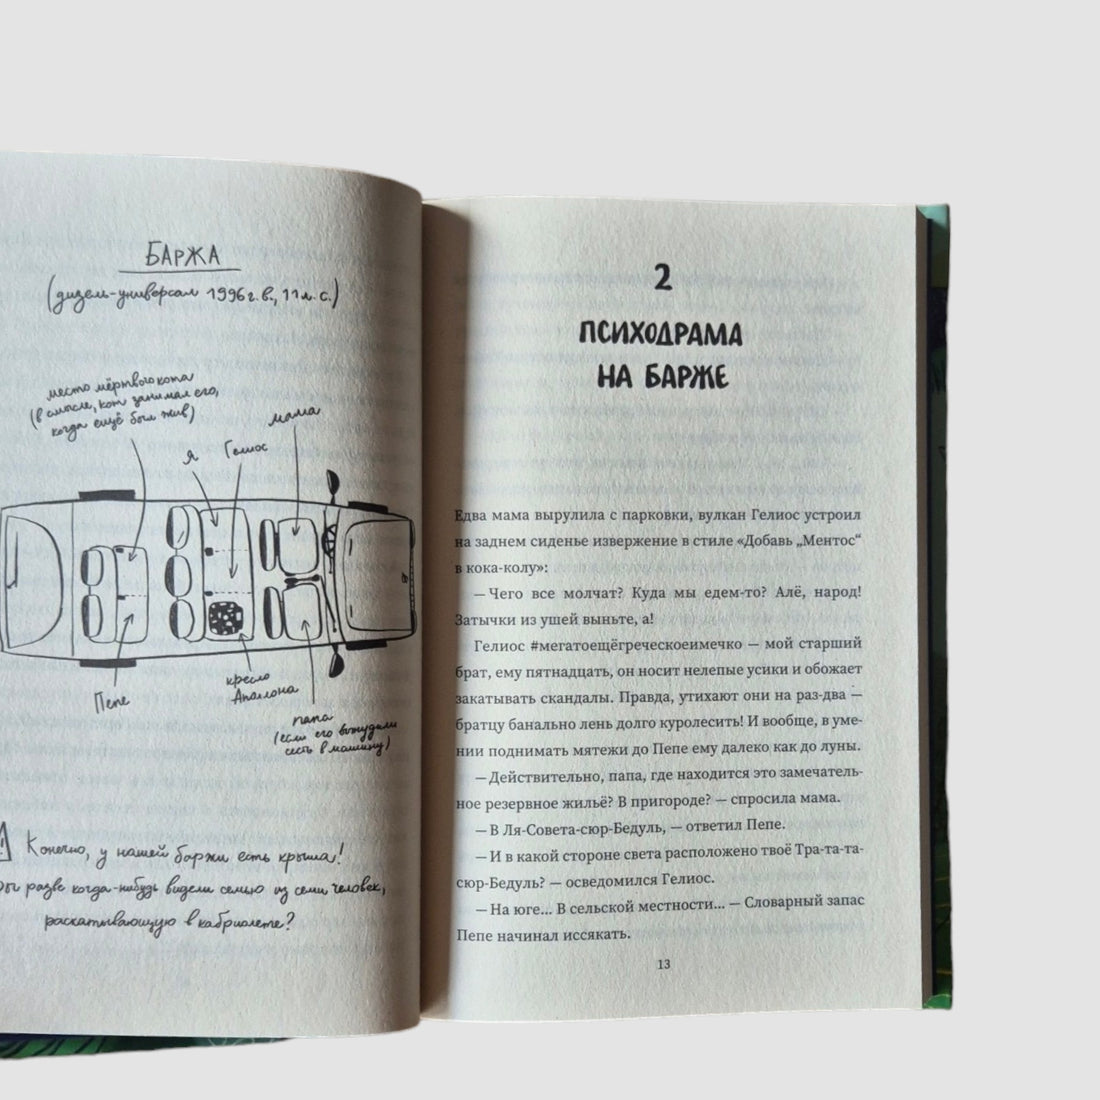 БАРЖА
(дизель-универсал 1996 г. в., 11 л. с.)
место мёртвого кота
(в смысле, кот занимал его,
когда ещё был жив)
я
Гелиос
мама
Пепе
кресло
Аполлона
папа
(если его вынудили
сесть в машину)
Конечно, у нашей баржи есть крыша!
Вы разве когда-нибудь видели семью из семи человек,
раскатывающую в кабриолете?
2
ПСИХОДРАМА
НА БАРЖЕ
Едва мама вырулила с парковки, вулкан Гелиос устроил
на заднем сиденье извержение в стиле «Добавь „Ментос“
в кока-колу»:
— Чего все молчат? Куда мы едем-то? Алё, народ!
Затычки из ушей выньте, а!
Гелиос #мегатоещёгреческоеимечко — мой старший
брат, ему пятнадцать, он носит нелепые усики и обожает
закатывать скандалы. Правда, утихают они на раз-два —
братцу банально лень долго куролесить! И вообще, в уме-
нии поднимать мятежи до Пепе ему далеко как до луны.
— Действительно, папа, где находится это замечатель-
ное резервное жильё? В пригороде? — спросила мама.
— В Ля-Совета-сюр-Бедуль, — ответил Пепе.
— И в какой стороне света расположено твоё Тра-та-та-
сюр-Бедуль? — осведомился Гелиос.
— На юге... В сельской местности... — Словарный запас
Пепе начинал иссякать.
13